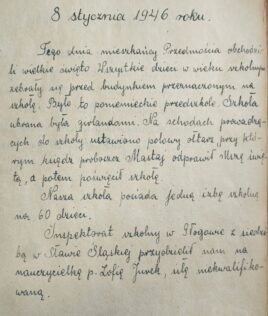 8 stycznia 1946 roku.
Tego dnia mieszkańcy Przedmościa obchodzi-
li wielkie święto. Wszystkie dzieci w wieku szkolnym
zebrały się przed budynkiem przeznaczonym na
szkołę. Było to poniemieckie przedszkole. Szkoła
ubrana była girlandami. Na schodach prowadzą-
cych do szkoły ustawiono polowy ołtarz przy któ-
rym ksiądz proboszcz odprawił Mszę świę-
tą, a potem poświęcił szkołę.
Nasza szkoła posiada jedną izbę szkolną
na 60 dzieci.
Inspektorat szkolny w Głogowie z siedzi-
bą w Sławie Śląskiej przydzielił nam na
nauczycielkę p. Zofię Jurek, siłę niekwalifiko-
waną.